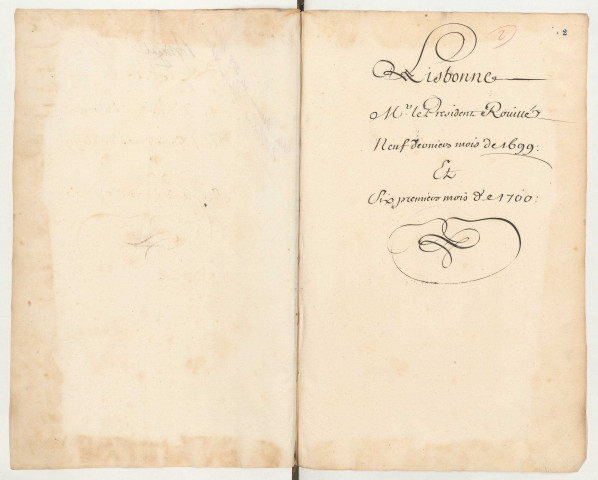 2
Lisbonne
Mr. le President Rouillé
Neuf derniers mois de 1699.
Et
Six premiers mois de 1700.